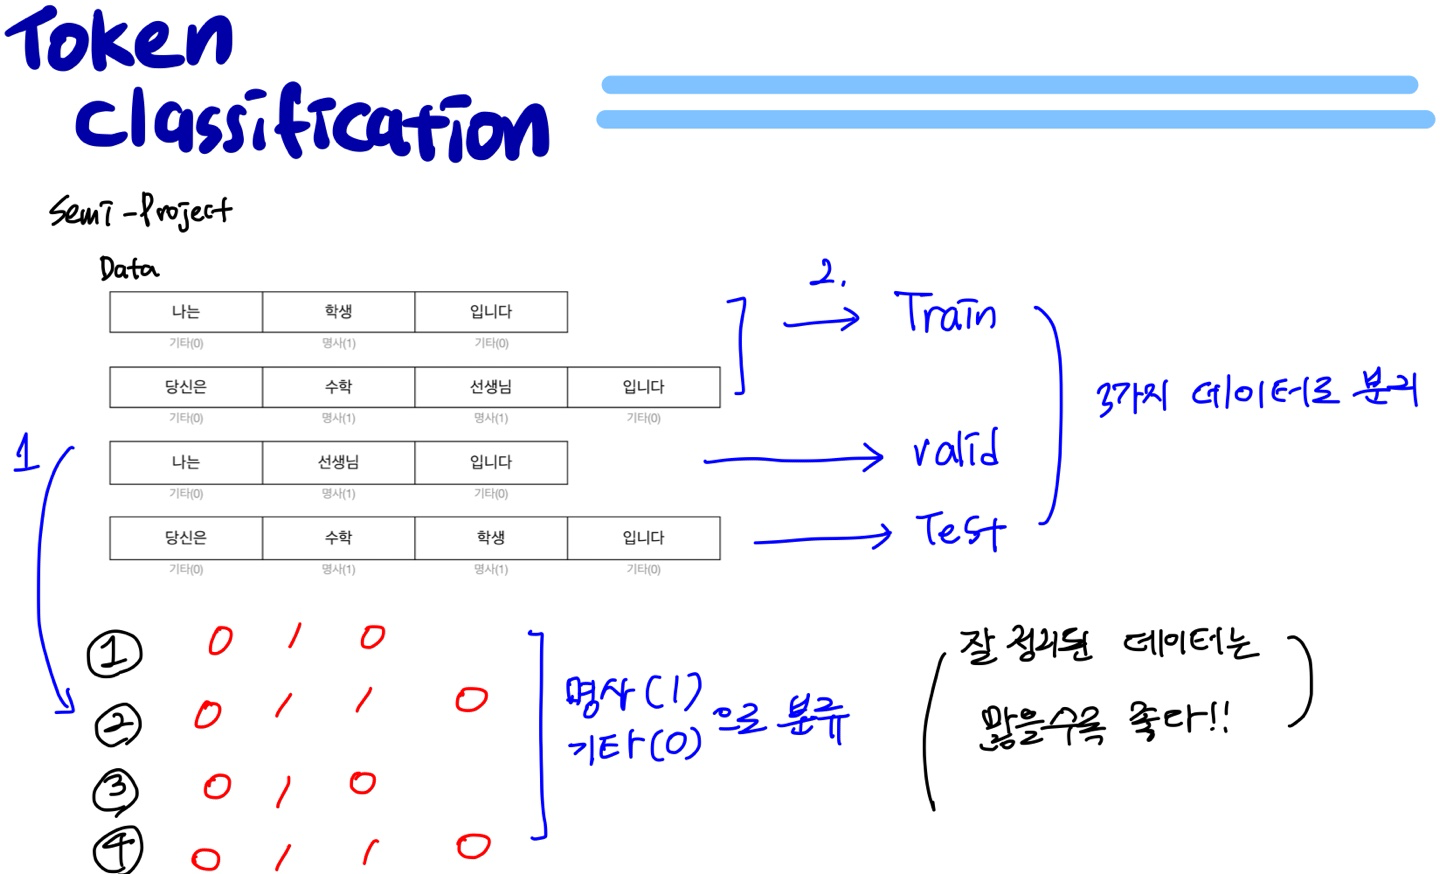 Token
classification
Semi-Project
Data
나는 학생 입니다
기타(0) 명사(1) 기타(0)
당신은 수학 선생님 입니다
기타(0) 명사(1) 명사(1) 기타(0)
나는 선생님 입니다
기타(0) 명사(1) 기타(0)
당신은 수학 학생 입니다
기타(0) 명사(1) 명사(1) 기타(0)
1
2.
Train
valid
Test
3가지 데이터로 분리
① 0 1 0
② 0 1 1 0
③ 0 1 0
④ 0 1 1 0
명사(1)
기타(0) 으로 분류
잘 정리된 데이터는
많을수록 좋다!!